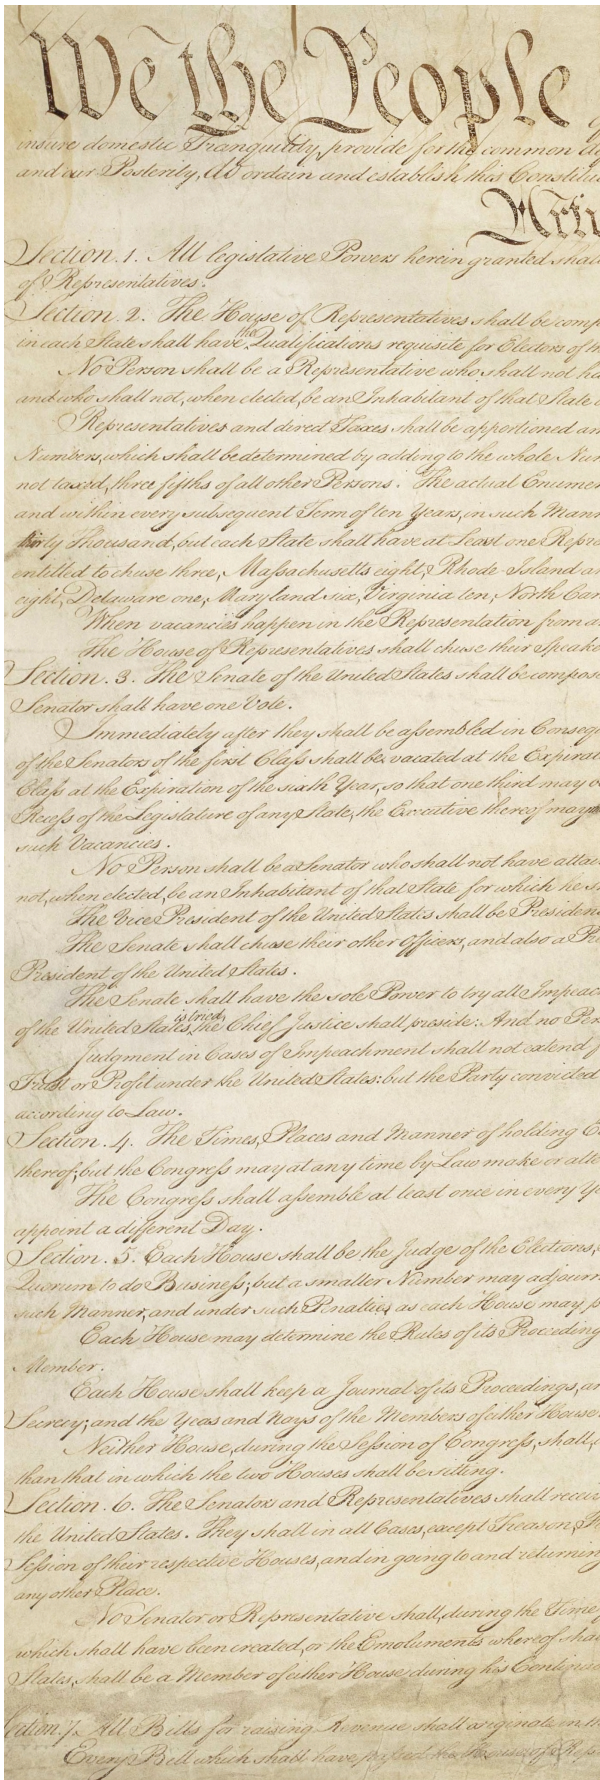 We the People
insure domestic Tranquility, provide for the common de
and our Posterity, do ordain and establish this Constitu
Arti
Section. 1. All legislative Powers herein granted shall
of Representatives.
Section. 2. The House of Representatives shall be comp
in each State shall have the Qualifications requisite for Electors of th
No Person shall be a Representative who shall not ha
and who shall not, when elected, be an Inhabitant of that State
Representatives and direct Taxes shall be apportioned am
Numbers, which shall be determined by adding to the whole Num
not taxed, three fifths of all other Persons. The actual Enumer
and within every subsequent Term of ten Years, in such Mann
thirty Thousand, but each State shall have at Least one Repre
entitled to chuse three, Massachusetts eight, Rhode-Island an
eight, Delaware one, Maryland six, Virginia ten, North Car
When vacancies happen in the Representation from a
The House of Representatives shall chuse their Speake
Section. 3. The Senate of the United States shall be compose
Senator shall have one Vote.
Immediately after they shall be assembled in Conseq
of the Senators of the first Class shall be vacated at the Expirat
Class at the Expiration of the sixth Year, so that one third may
Recess of the Legislature of any State, the Executive thereof may
such Vacancies.
No Person shall be a Senator who shall not have attai
not, when elected, be an Inhabitant of that State for which he s
The Vice President of the United States shall be Presiden
The Senate shall chuse their other Officers, and also a Pr
President of the United States.
The Senate shall have the sole Power to try all Impeac
of the United States is tried, the Chief Justice shall preside: And no Per
Judgment in Cases of Impeachment shall not extend f
Trust or Profit under the United States: but the Party convicted
according to Law.
Section. 4. The Times, Places and Manner of holding E
thereof; but the Congress may at any time by Law make or alte
The Congress shall assemble at least once in every Y
appoint a different Day.
Section. 5. Each House shall be the Judge of the Elections,
Quorum to do Business; but a smaller Number may adjourn
such Manner, and under such Penalties as each House may p
Each House may determine the Rules of its Proceeding
Member.
Each House shall keep a Journal of its Proceedings, an
Secrecy; and the Yeas and Nays of the Members of either House
Neither House, during the Session of Congress, shall,
than that in which the two Houses shall be sitting.
Section. 6. The Senators and Representatives shall recei
the United States. They shall in all Cases, except Treason, F
Session of their respective Houses, and in going to and returning
any other Place.
No Senator or Representative shall, during the Time
which shall have been created, or the Emoluments whereof sha
States, shall be a Member of either House during his Continu
Section. 7. All Bills for raising Revenue shall originate in th
Every Bill which shall have passed the House of Rep